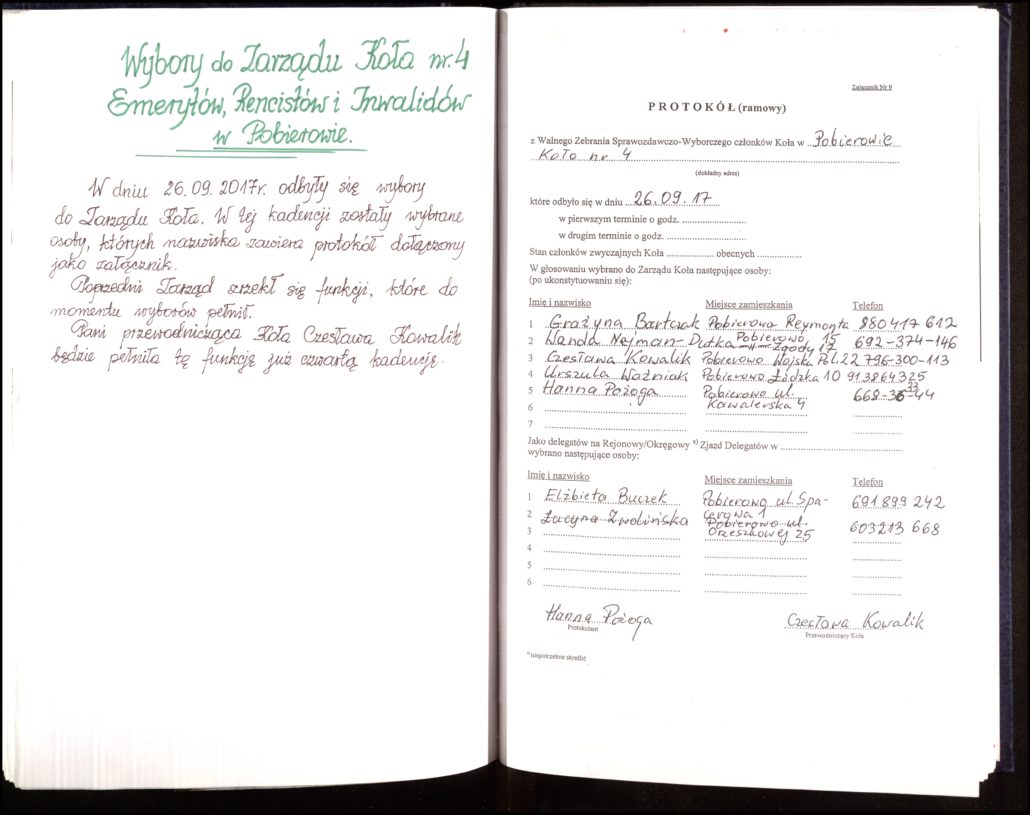 Wybory do Zarządu Koła nr. 4
Emerytów, Rencistów i Inwalidów
w Pobierowie.
W dniu 26.09.2017r. odbyły się wybory
do Zarządu Koła. W tej kadencji zostały wybrane
osoby, których nazwiska zawiera protokół dołączony
jako załącznik.
Poprzedni Zarząd zrzekł się funkcji, które do
momentu wyborów pełnił.
Pani przewodnicząca Koła Czesława Kowalik
będzie pełniła tę funkcję już czwartą kadencję.
Załącznik Nr 9
PROTOKÓŁ (ramowy)
z Walnego Zebrania Sprawozdawczo-Wyborczego członków Koła w Pobierowie
Koło nr 4
(dokładny adres)
które odbyło się w dniu 26.09.17
w pierwszym terminie o godz.
w drugim terminie o godz.
Stan członków zwyczajnych Koła obecnych
W głosowaniu wybrano do Zarządu Koła następujące osoby:
(po ukonstytuowaniu się):
Imię i nazwisko Miejsce zamieszkania Telefon
1 Grażyna Bartczak Pobierowo Reymonta 15 860 417 612
2 Wanda Nejman-Dutka Pobierowo Zgody 17 692-374-146
3 Czesława Kowalik Pobierowo Wojska Pol. 22 796-300-113
4 Urszula Woźniak Pobierowo Łódzka 10 913864325
5 Hanna Pożoga Pobierowo ul. Kawalerska 4
6
7
Jako delegatów na Rejonowy/Okręgowy x) Zjazd Delegatów w
wybrano następujące osoby:
Imię i nazwisko Miejsce zamieszkania Telefon
1 Elżbieta Buczek Pobierowo ul. Spacerowa 1 691 899 242
2 Łucyna Zwolińska Pobierowo ul. Orzeszkowej 25 603213 668
3
4
5
6
Hanna Pożoga Czesława Kowalik
Protokolant Przewodniczący Koła
x) niepotrzebne skreślić